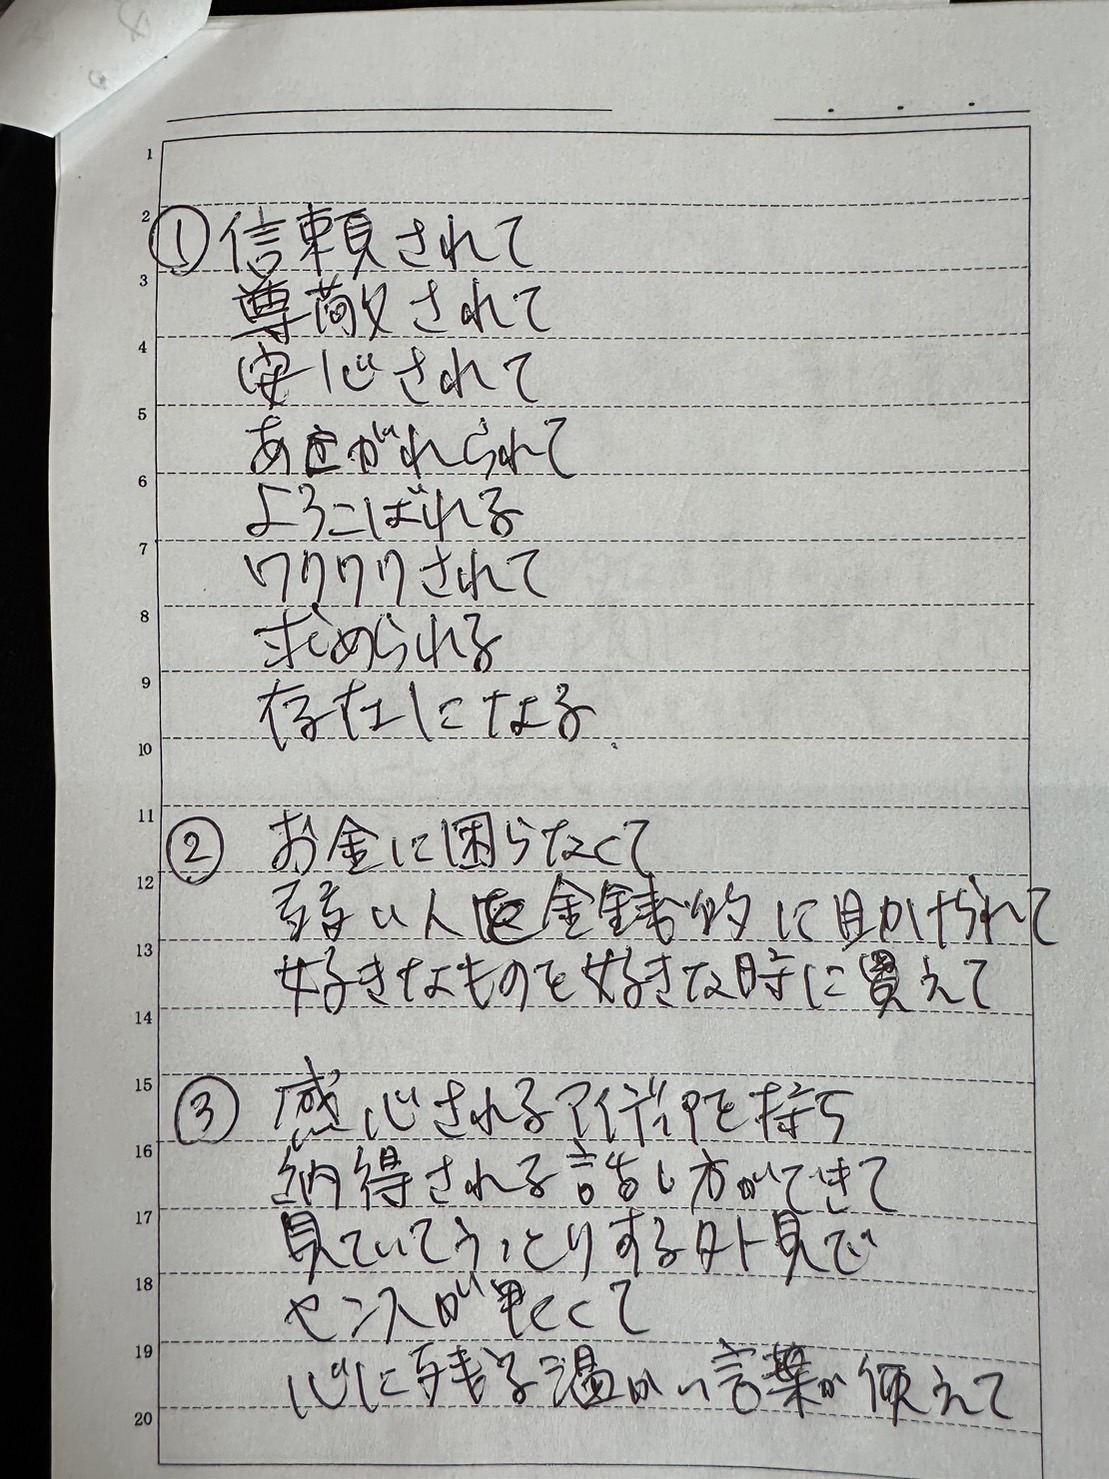 1
2
① 信頼されて
3
尊敬されて
4
安心されて
5
あこがれられて
6
よろこばれる
7
ワクワクされて
8
求められる
9
存在になる
10
11
② お金に困らなくて
12
弱い人を金銭的に助けられて
13
好きなものを好きな時に買えて
14
15
③ 感心されるアイディアを持ち
16
納得される話し方ができて
17
見ていてうっとりする外見で
18
センスが
くて
19
心に残る温かい言葉が使えて
20